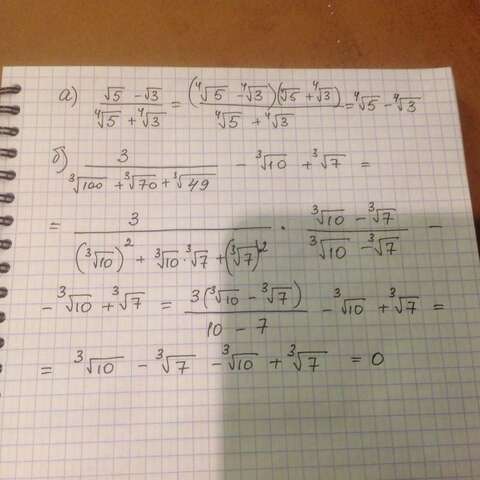 а) (√5 - √3)/(⁴√5 + ⁴√3) = ((⁴√5 - ⁴√3)(⁴√5 + ⁴√3))/(⁴√5 + ⁴√3) = ⁴√5 - ⁴√3
б) 3/(³√100 + ³√70 + ³√49) - ³√10 + ³√7 =
= 3/((³√10)² + ³√10 · ³√7 + (³√7)²) · (³√10 - ³√7)/(³√10 - ³√7) -
- ³√10 + ³√7 = (3(³√10 - ³√7))/(10 - 7) - ³√10 + ³√7 =
= ³√10 - ³√7 - ³√10 + ³√7 = 0